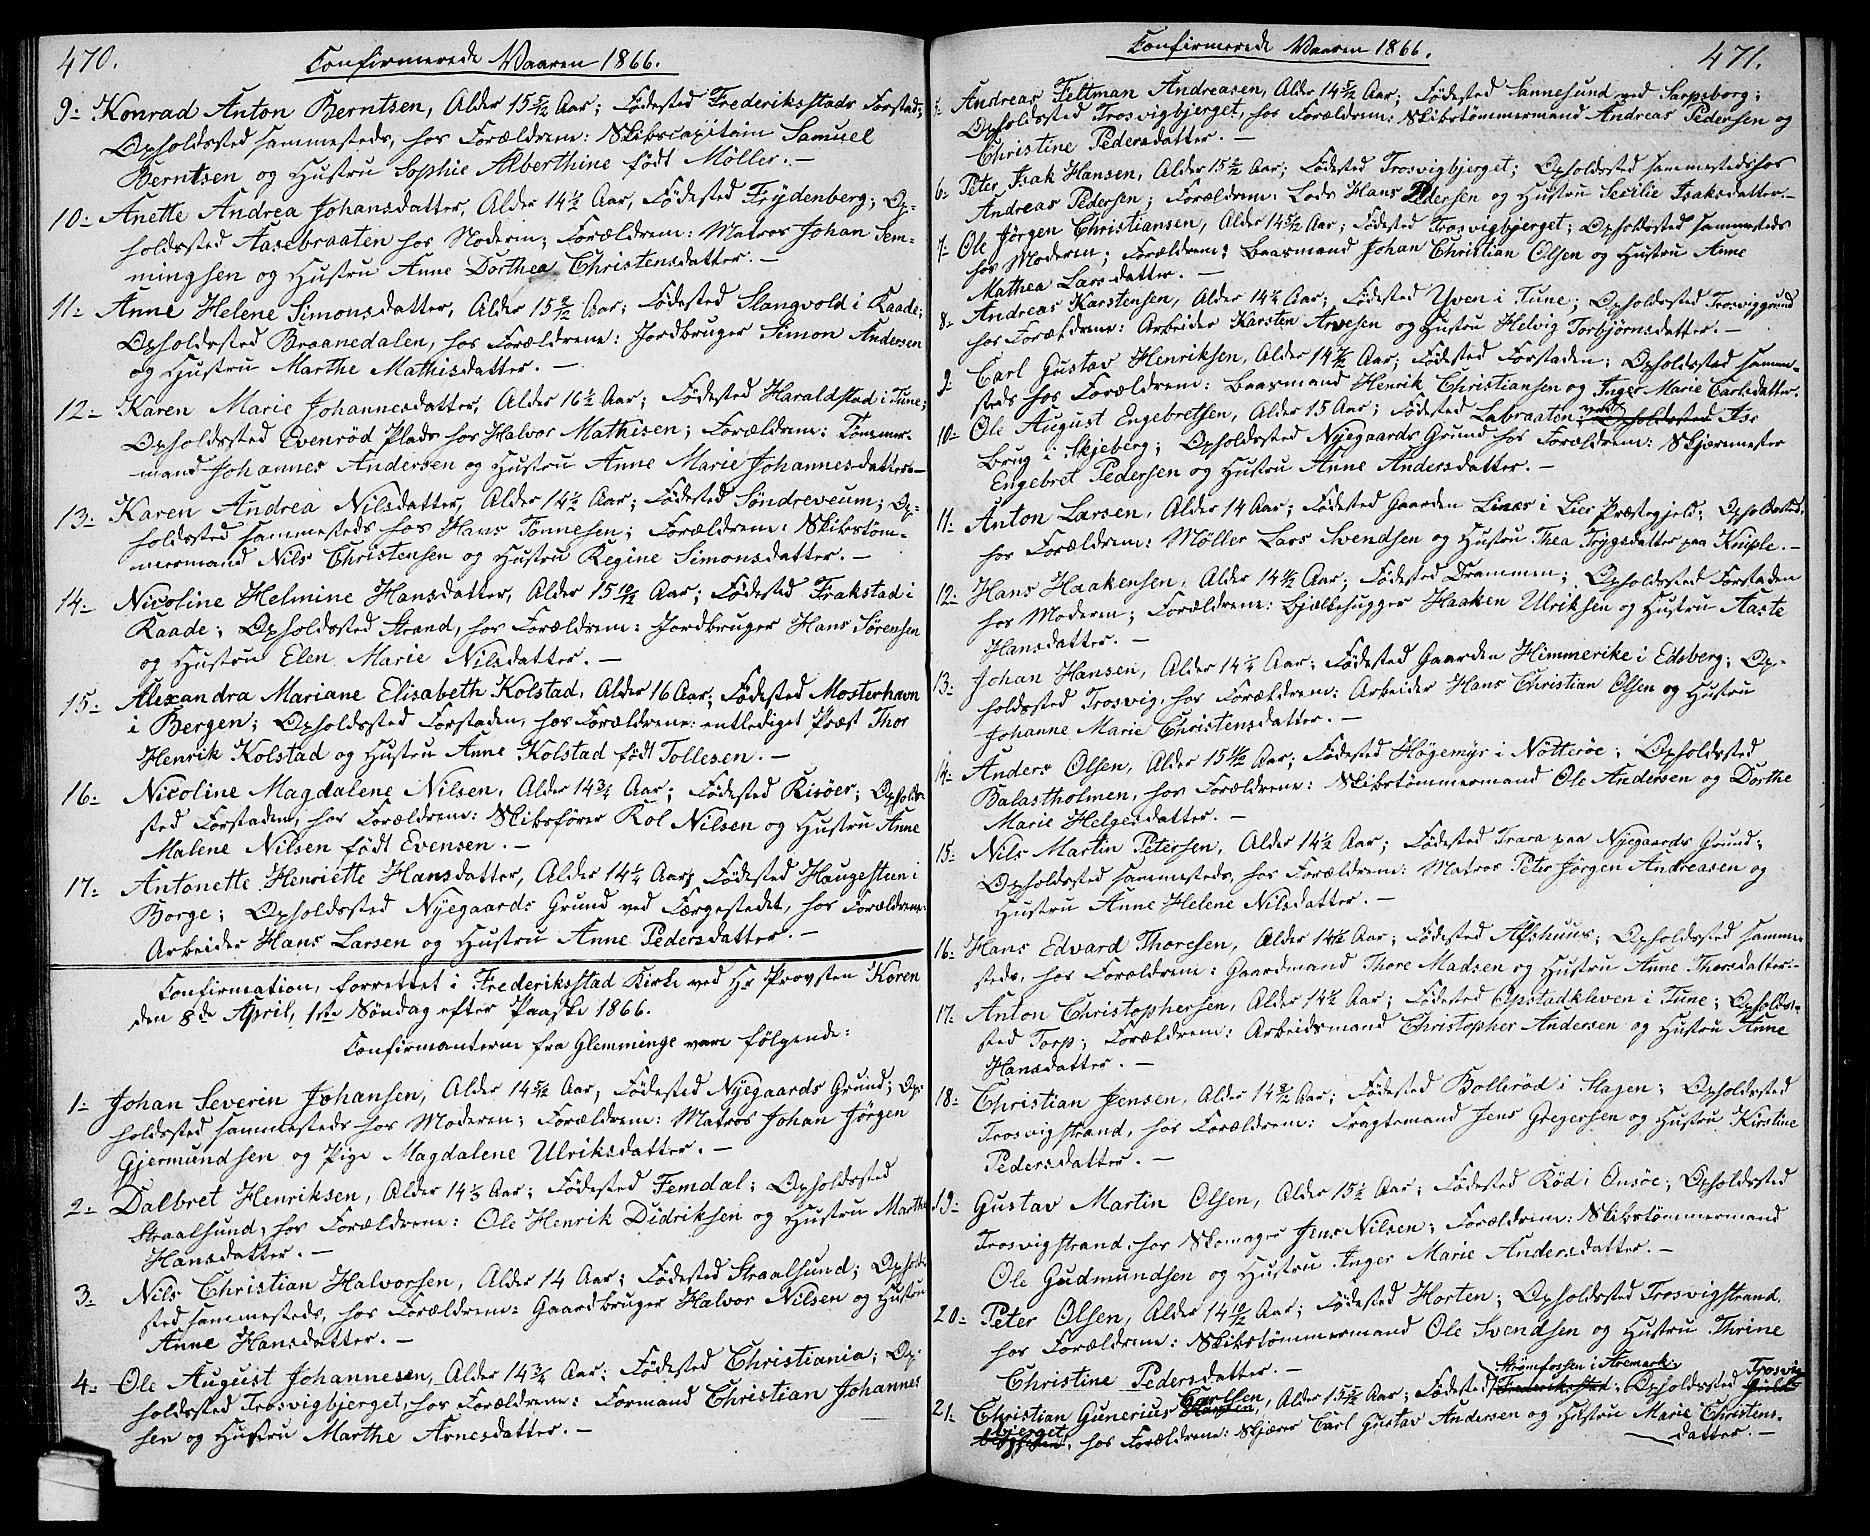 470.
Confirmerede Vaaren 1866.
9: Konrad Anton Berntsen, Alder 15 5/12 Aar; Fødested Frederiksstads Forstad;
Opholdssted sammesteds, hos Forældrene: Skibscapitain Samuel
Berntsen og Hustru Sophie Alberthine født Møller. —
10: Anette Andrea Johansdatter, Alder 14 1/2 Aar, Fødested Frydenberg; Op-
holdssted Aasebraaten hos Moderen; Forældrene: Matros Johan Fem-
mingsen og Hustru Anne Dorthea Christensdatter. —
11: Anne Helene Simonsdatter, Alder 15 8/12 Aar; Fødested Slangvold i Raade;
Opholdssted Braanedalen, hos Forældrene: Jordbruger Simon Andersen
og Hustru Marthe Mathisdatter. —
12: Karen Marie Johannesdatter, Alder 16 1/2 Aar; Fødested Haraldstad i Tune;
Opholdssted Evenrød Plads hos Halvor Mathisen; Forældrene: Tømmer-
mand Johannes Andersen og Hustru Anne Marie Johannesdatter. —
13: Karen Andrea Nilsdatter, Alder 14 1/2 Aar; Fødested Søndreveum; Op-
holdssted sammesteds hos Hans Tønnesen; Forældrene: Skibstøm-
mermand Nils Christensen og Hustru Regine Simonsdatter. —
14: Nicoline Helmine Hansdatter, Alder 15 10/12 Aar; Fødested Frakstad i
Raade; Opholdssted Strand, hos Forældrene: Jordbruger Hans Sørensen
og Hustru Elen Marie Nilsdatter. —
15: Alexandra Mariane Elisabeth Kolstad, Alder 16 Aar; Fødested Mosterhavn
i Bergen; Opholdssted Forstaden, hos Forældrene: entlediget Præst Thor
Henrik Kolstad og Hustru Anne Kolstad født Tollesen. —
16: Nicoline Magdalene Nilsen, Alder 14 3/4 Aar; Fødested Risøer; Opholds-
sted Forstaden, hos Forældrene: Skibsfører Rol Nilsen og Hustru Anne
Malene Nilsen født Evensen. —
17: Antonette Henriette Hansdatter, Alder 14 1/4 Aar; Fødested Haugestuen i
Borge; Opholdssted Nyegaards Grund ved Færgestedet, hos Forældrene:
Arbeider Hans Larsen og Hustru Anne Pedersdatter. —
Confirmation, forrettet i Frederiksstad Kirke ved Hr Provsten Koren
den 8de April, 1ste Søndag efter Paaske 1866.
Confirmanterne fra Glemminge vare følgende:
1: Johan Severin Johansen, Alder 14 5/12 Aar; Fødested Nyegaards Grund; Op-
holdssted sammesteds hos Moderen; Forældrene: Matros Johan Jørgen
Gjermundsen og Pige Magdalene Ulriksdatter. —
2: Dalbret Henriksen, Alder 14 1/2 Aar; Fødested Femdal; Opholdssted
Straalsund, hos Forældrene: Ole Henrik Didriksen og Hustru Marthe
Hansdatter. —
3: Nils Christian Halvorsen, Alder 14 Aar; Fødested Straalsund; Ophold-
sted sammesteds, hos Forældrene: Gaardbruger Halvor Nilsen og Hustru
Anne Hansdatter. —
4: Ole August Johannesen, Alder 14 3/4 Aar; Fødested Christiania; Op-
holdssted Trosvigbjerget, hos Forældrene: Formand Christian Johannes
sen og Hustru Marthe Arnesdatter. —
Confirmerede Vaaren 1866.
471.
Andreas Feltman Andreasen, Alder 14 5/12 Aar; Fødested Sannesund ved Sarpsborg;
Opholdssted Trosvigbjerget, hos Forældrene: Skibstømmermand Andreas Pedersen og
Christine Pedersdatter. —
6: Peter Isak Hansen, Alder 15 5/12 Aar; Fødested Trosvigbjerget; Opholdssted sammesteds hos
Andreas Pedersen; Forældrene: Lods Hans Pedersen og Hustru Secilie Isaksdatter. —
7: Ole Jørgen Christiansen, Alder 14 5/12 Aar; Fødested Trosvigbjerget; Opholdssted sammesteds
hos Moderen; Forældrene: Baasmand Johan Christian Olsen og Hustru Anne
Mathea Larsdatter. —
8: Andreas Karstensen, Alder 14 1/4 Aar; Fødested Yven i Tune; Opholdssted Trosviggrund
hos Forældrene: Arbeider Karsten Arvesen og Hustru Helvig Torbjørnsdatter. —
9: Carl Gustav Henriksen, Alder 14 7/12 Aar; Fødested Forstaden; Opholdssted samme-
steds hos Forældrene: Baasmand Henrik Christiansen og Inger Marie Carlsdatter.
10: Ole August Engebretsen, Alder 15 Aar; Fødested Labraaten ved Opholdssted Ise
Brug i Skjeberg; Opholdssted Nyegaards Grund hos Forældrene: Skjærmester
Engebret Pedersen og Hustru Anne Andersdatter. —
11: Anton Larsen, Alder 14 Aar; Fødested Gaarden Linæs i Lier Præstegjeld; Opholdssted
hos Forældrene: Møller Lars Svendsen og Hustru Thea Trygsdatter paa Kniple. —
12: Hans Haakensen, Alder 14 4/12 Aar; Fødested Drammen; Opholdssted Forstaden
hos Moderen; Forældrene: Bjælkehugger Haaken Ulriksen og Hustru Aaste
Hansdatter. —
13: Johan Hansen, Alder 14 1/4 Aar; Fødested Gaarden Himmerike i Edsberg; Op-
holdssted Trosvig, hos Forældrene: Arbeider Hans Christian Olsen og Hustru
Johanne Marie Christensdatter. —
14: Anders Olsen, Alder 15 4/12 Aar; Fødested Høgemyr i Nøtterøe; Opholdssted
Balastholmen, hos Forældrene: Skibstømmermand Ole Andersen og Dorthe
Marie Helgesdatter. —
15: Nils Martin Petersen, Alder 14 1/2 Aar; Fødested Trara paa Nyegaards Grund;
Opholdssted sammesteds, hos Forældrene: Matros Peter Jørgen Andreasen og
Hustru Anne Helene Nilsdatter. —
16: Hans Edvard Thoresen, Alder 14 1/2 Aar; Fødested Afshuus; Opholdssted samme-
steds, hos Forældrene: Gaardmand Thore Madsen og Hustru Anne Thorsdatter. —
17: Anton Christophersen, Alder 14 1/2 Aar; Fødested Opstadkleven i Tune; Opholds-
sted Torp; Forældrene: Arbeidsmand Christopher Andersen og Hustru Anne
Hansdatter. —
18: Christian Jensen, Alder 14 8/12 Aar; Fødested Bollerød i Slagen; Opholdssted
Trosvigstrand, hos Forældrene: Fragtemand Jens Gregersen og Hustru Kirstine
Pedersdatter. —
19: Gustav Martin Olsen, Alder 15 1/2 Aar; Fødested Rød i Onsøe; Opholdssted
Trosvigstrand, hos Skomager Jens Nilsen; Forældrene: Skibstømmermand
Ole Gudmundsen og Hustru Inger Marie Andersdatter. —
20: Peter Olsen, Alder 14 10/12 Aar; Fødested Horten; Opholdssted Trosvigstrand,
hos Forældrene: Skibstømmermand Ole Svendsen og Hustru Thrine
Christine Pedersdatter. —
21: Christian Gunerius Carlsen, Alder 15 5/12 Aar; Fødested Strømfossen i Aremark; Frederiksstad; Opholdssted Trosvig
bjerget, hos Forældrene: Skjærer Carl Gustav Andersen og Hustru Marie Christens-
datter. —